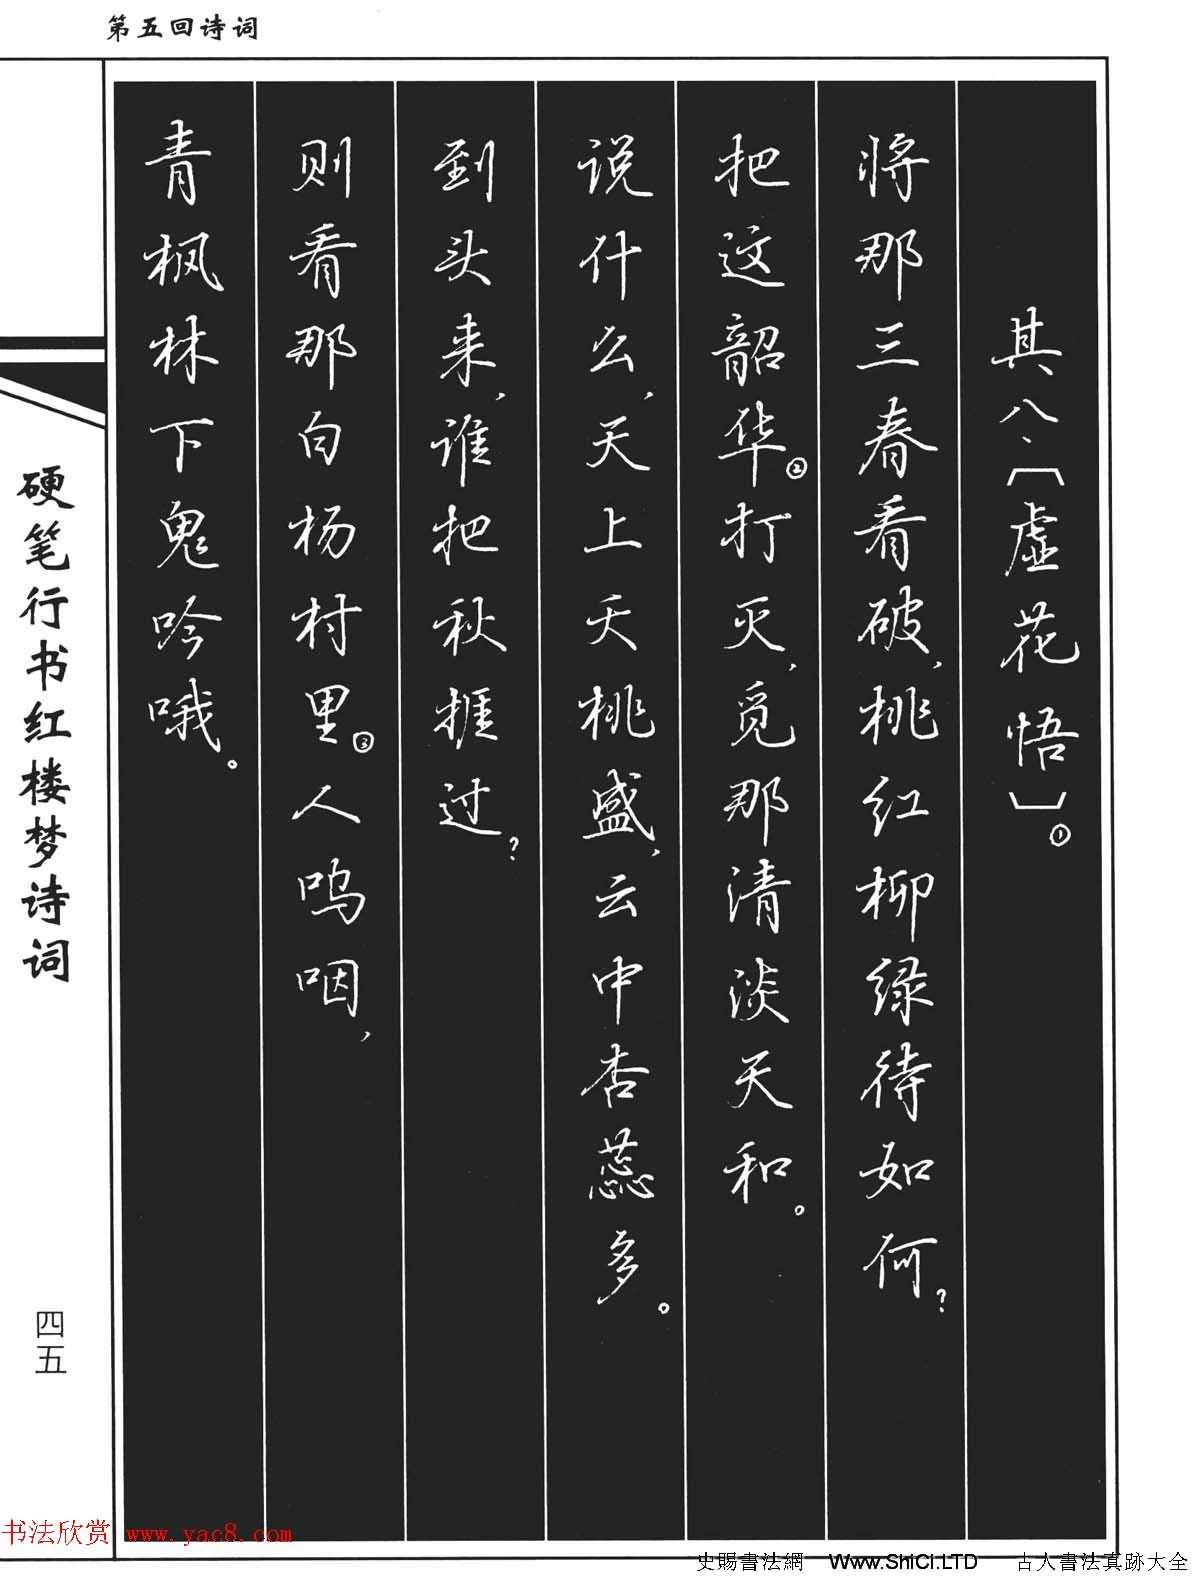 第五回诗词
其八、〔虚花悟〕①
将那三春看破，桃红柳绿待如何？
把这韶华②打灭，觅那清淡天和。
说什么，天上夭桃盛，云中杏蕊多。
到头来，谁把秋捱过？
则看那白杨村里③人呜咽，
青枫林下鬼吟哦。
硬笔行书红楼梦诗词
四五
书法欣赏 www.yac8.com
史賜書法網 Www.ShiCi.LTD 古人書法真跡大全